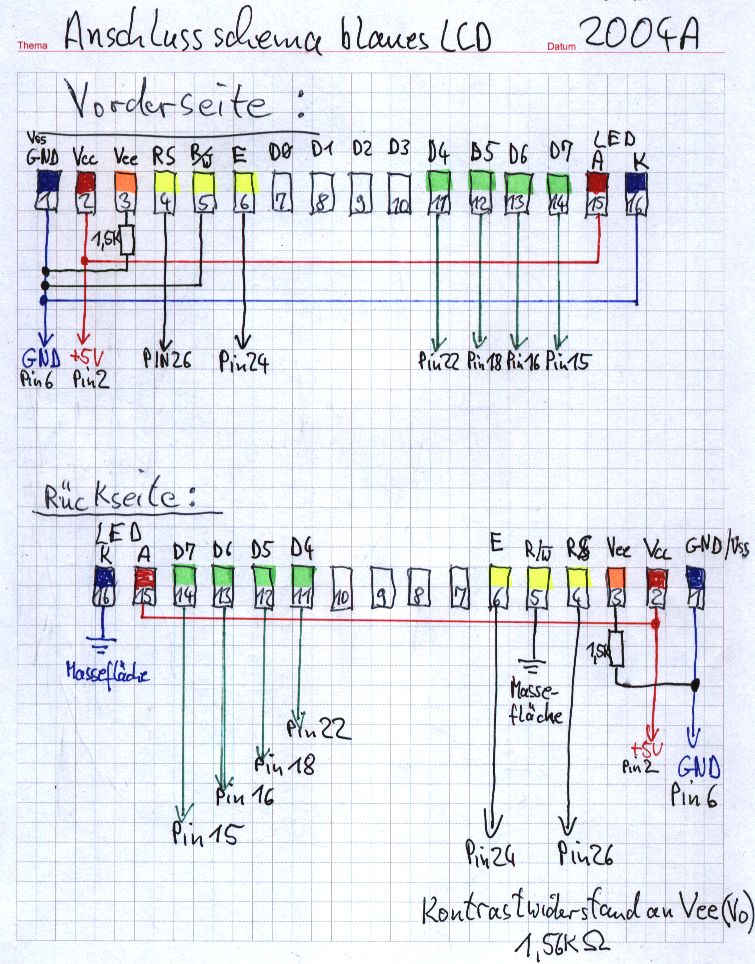 Thema Anschlussschema blaues LCD Datum 2004A
Vorderseite:
Vss LED
GND Vcc Vee RS R/W E D0 D1 D2 D3 D4 D5 D6 D7 A K
1 2 3 4 5 6 7 8 9 10 11 12 13 14 15 16
1,5K
GND +5V PIN26 Pin24 Pin22 Pin18 Pin16 Pin15
Pin6 Pin2
Rückseite:
LED
K A D7 D6 D5 D4 E R/W RS Vee Vcc GND/Vss
16 15 14 13 12 11 10 9 8 7 6 5 4 3 2 1
1,5K
Massefläche
Masse-
fläche
Pin22
+5V
Pin 18
Pin2 GND
Pin 16
Pin 6
Pin 15
Pin24 Pin26
Kontrastwiderstand an Vee (V0)
1,56KΩ